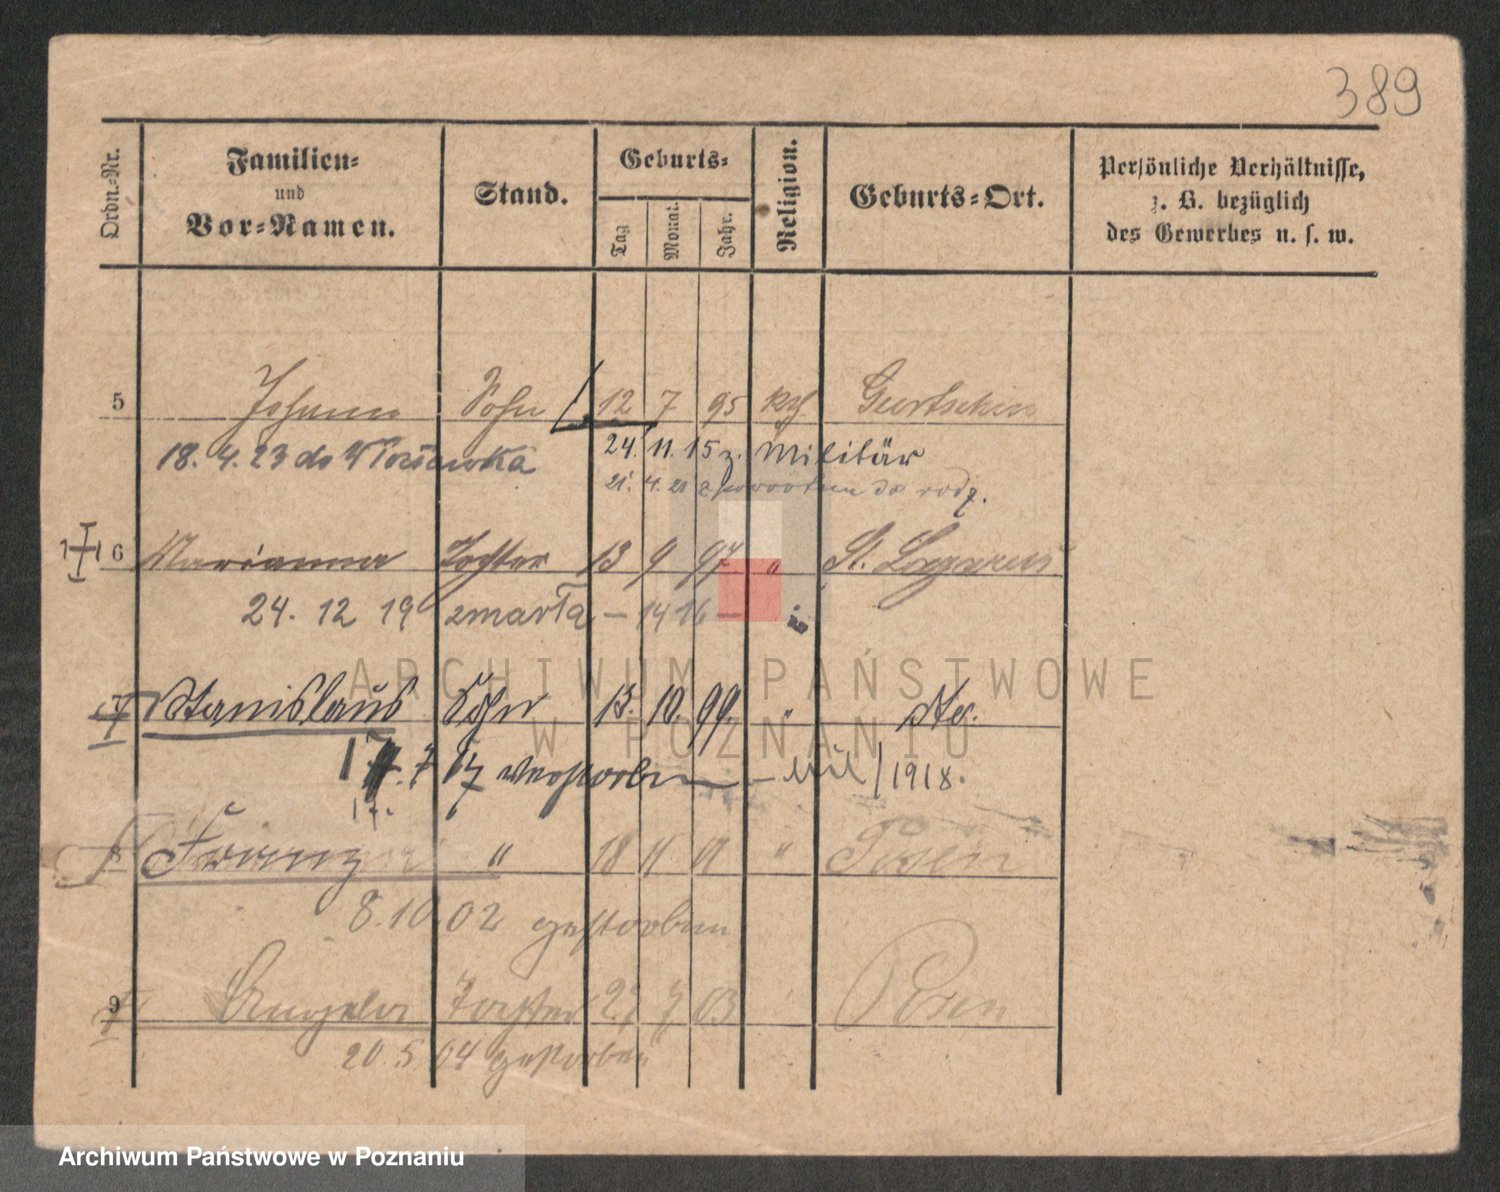 389
Ordn.-Nr.
Familien-
und
Vor-Namen.
Stand.
Geburts-
Tag
Monat.
Jahr.
Religion.
Geburts-Ort.
Persönliche Verhältnisse,
z. B. bezüglich
des Gewerbes u. s. w.
5 Johann Sohn 12 7 95 Gurtschin
18. 4. 23 do 24. 11. 15 z. Militär
21. 4. 21 z powrotem do rodz.
6 Marianna Tochter 13 9 97 " St. Lazarus
24. 12 19 zmarła – 14 16 –
7 Stanislaus Sohn 13. 10. 99. "
17. 7 17 verstorben – 1918.
17.
8 Franz " 18 11 01 " Posen
8. 10. 02 gestorben
9 Angela Tochter 27 7 03 Posen
20. 5. 04 gestorben
ARCHIWUM PAŃSTWOWE
W POZNANIU
Archiwum Państwowe w Poznaniu